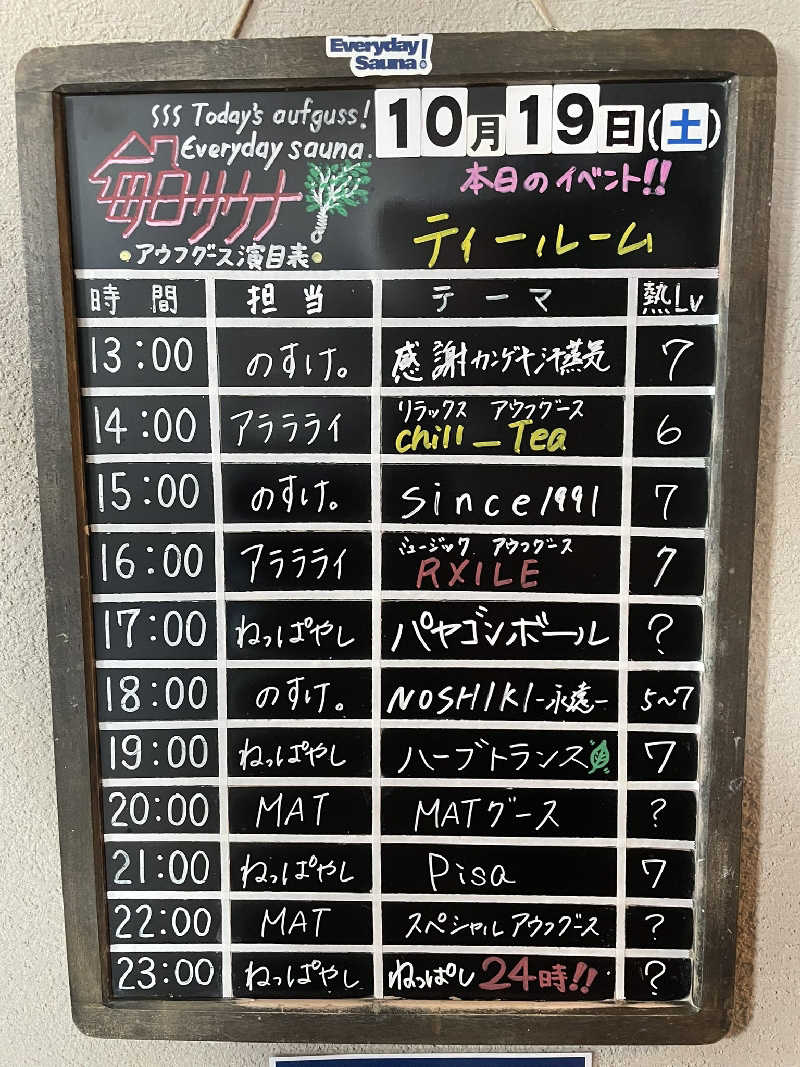 Everyday!
Sauna!
Today's aufguss!
Everyday sauna.
毎日サウナ
・アウフグース演目表・
10月19日(土)
本日のイベント!!
ティールーム
時間 担当 テーマ 熱Lv
13:00 のすけ。 感謝カンゲキ汗蒸気 7
14:00 アラララライ リラックス アウフグース chill_Tea 6
15:00 のすけ。 since1991 7
16:00 アラララライ ミュージック アウフグース RXILE 7
17:00 ねっぱやし パヤゴンボール ?
18:00 のすけ。 NOSHIKI-永遠- 5~7
19:00 ねっぱやし ハーブトランス 7
20:00 MAT MATグース ?
21:00 ねっぱやし Pisa 7
22:00 MAT スペシャルアウフグース ?
23:00 ねっぱやし ねっぱし24時!! ?